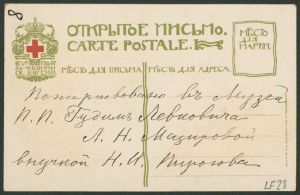 8
ОТКРЫТОЕ ПИСЬМО.
CARTE POSTALE.
МѢСТО ДЛЯ МАРКИ.
МѢСТО ДЛЯ ПИСЬМА
МѢСТО ДЛЯ АДРЕСА.
СВ. ЕВГЕНІИ
Пожертвовано въ Музей
П. П. Гудимъ Левковича
Л. Н. Мазировой
внучкой Н. И. Пирогова